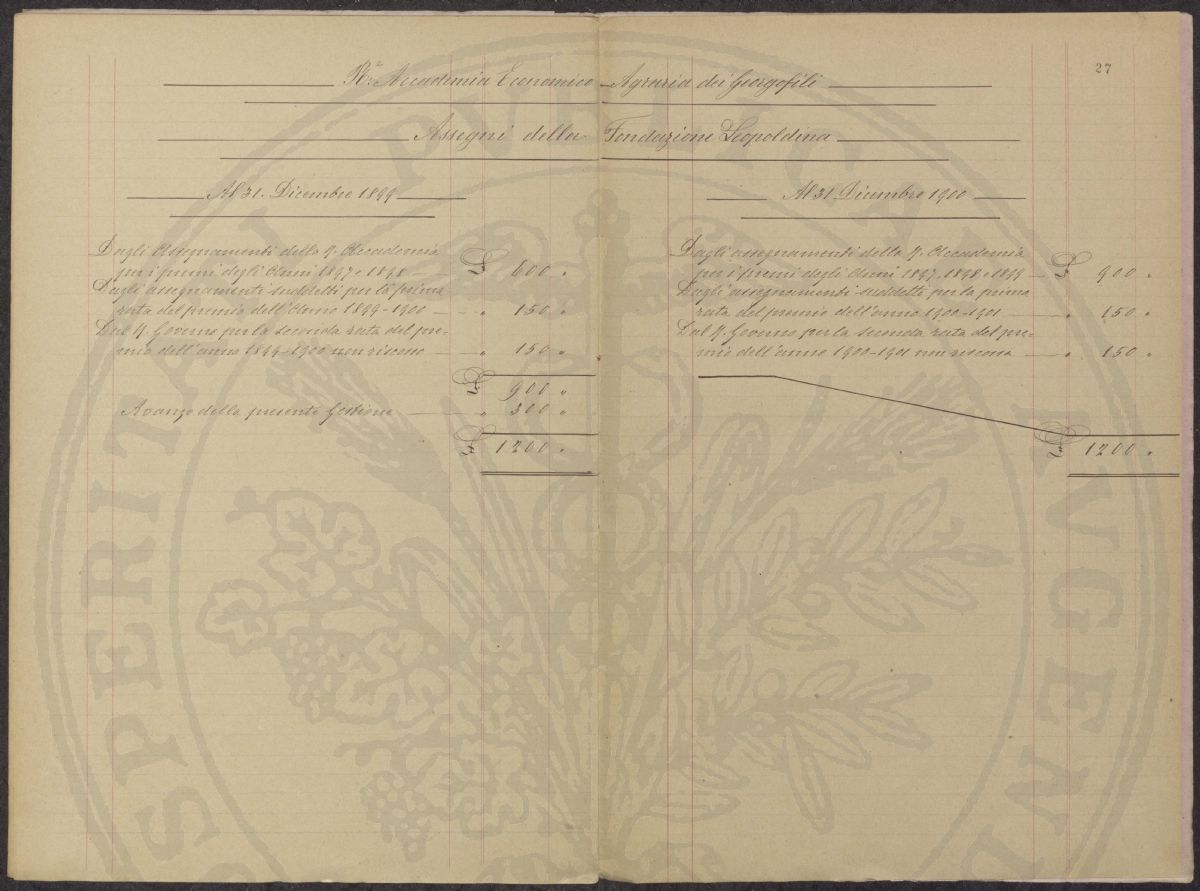 27
R.ª Accademia Economico-Agraria dei Georgofili
Assegni della Fondazione Leopoldina
Al 31. Dicembre 1899
Dagli Assegnamenti della R. Accademia
per i premi degli Anni 1897 e 1898 £ 600 "
Dagli assegnamenti suddetti per la prima
rata del premio dell'Anno 1899-1900 " 150 "
Dal R. Governo per la seconda rata del pre=
mio dell'anno 1899-1900 non riscosso " 150 "
£ 900 "
Avanzo della presente Gestione " 300 "
£ 1200 "
Al 31 Dicembre 1900
Dagli assegnamenti della R. Accademia
per i premi degli Anni 1897, 1898 e 1899 £ 900 "
Dagli assegnamenti suddetti per la prima
rata del premio dell'anno 1900-1901 " 150 "
Dal R. Governo per la seconda rata del pre=
mio dell'anno 1900-1901 non riscossa " 150 "
£ 1200 "
PROSPERITATI PVBLICAE AVGENDAE